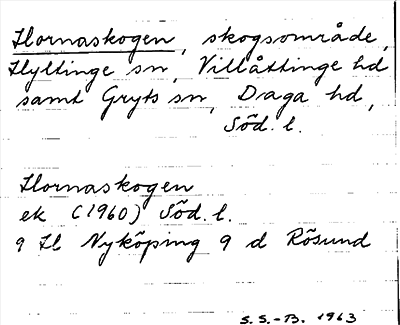 Hornaskogen, skogsområde,
Hyltinge sn, Villåttinge hd
samt Gryts sn, Daga hd,
Söd. l.
Hornaskogen
ek (1960) Söd. l.
9 H Nyköping 9 d Rösund
S.S.-B. 1963